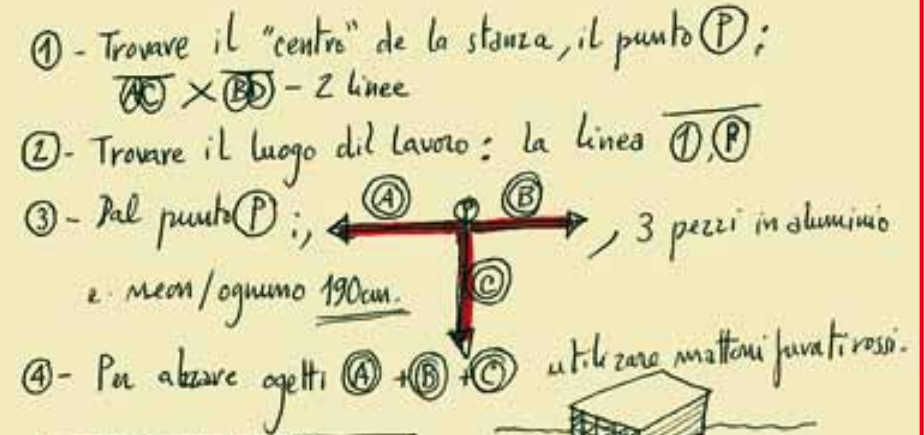 ① - Trovare il "centro" de la stanza, il punto Ⓟ;
ⒶⒸ × ⒷⒹ - 2 linee
② - Trovare il luogo dil lavoro: la linea ①,Ⓟ
③ - Dal punto Ⓟ;, Ⓐ Ⓟ Ⓑ , 3 pezzi in aluminio
Ⓒ
e neon/ognuno 190cm.
④ - Per alzare ogetti Ⓐ + Ⓑ + Ⓒ utilizare mattoni forati rossi.